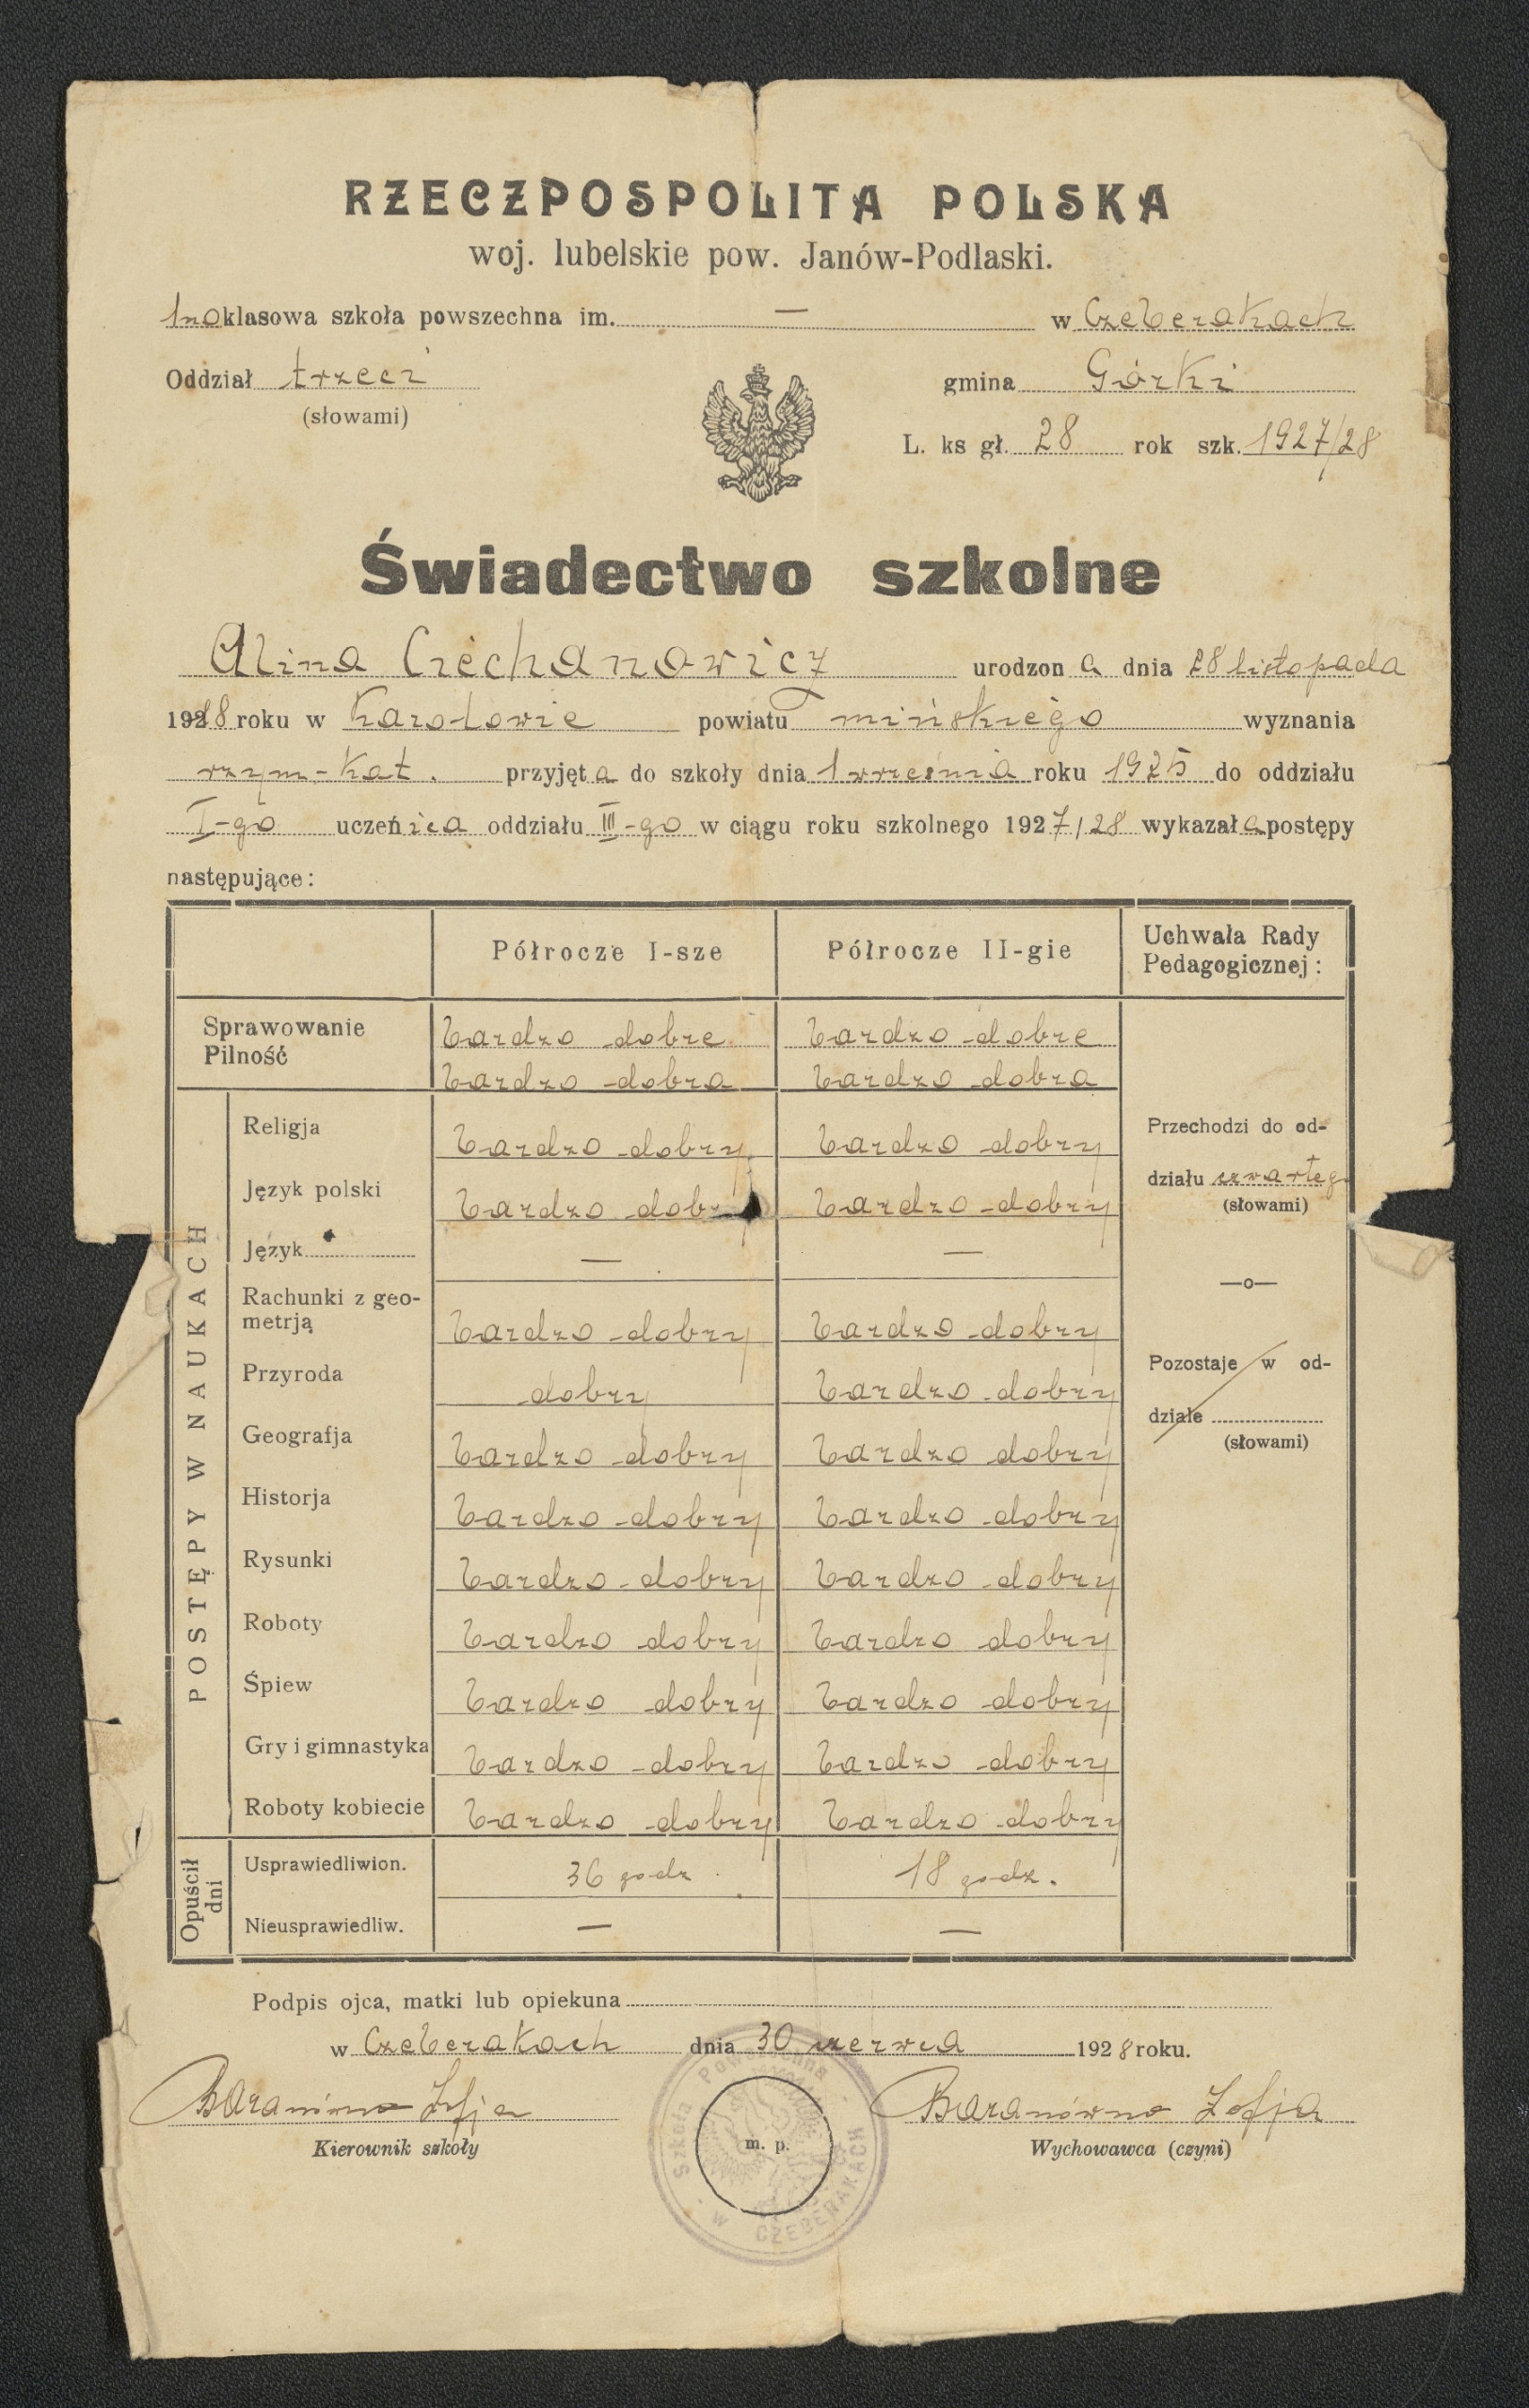 RZECZPOSPOLITA POLSKA
woj. lubelskie pow. Janów-Podlaski.
1noklasowa szkoła powszechna im. — w Czeberakach
Oddział trzeci gmina Górki
(słowami)
L. ks gł. 28 rok szk. 1927/28
Świadectwo szkolne
Alina Ciechanowicz urodzona dnia 28 listopada
1918 roku w Karolowie powiatu mińskiego wyznania
rzym-kat. przyjęta do szkoły dnia 1 września roku 1925 do oddziału
I-go uczeńica oddziału III-go w ciągu roku szkolnego 1927/28 wykazała postępy
następujące:
Półrocze I-sze Półrocze II-gie Uchwała Rady
Pedagogicznej:
Sprawowanie bardzo dobre bardzo dobre
Pilność bardzo dobra bardzo dobra
POSTĘPY W NAUKACH
Religja bardzo dobry bardzo dobry
Język polski bardzo dobry bardzo dobry
Język — —
Rachunki z geo-
metrją bardzo dobry bardzo dobry
Przyroda dobry bardzo dobry
Geografja bardzo dobry bardzo dobry
Historja bardzo dobry bardzo dobry
Rysunki bardzo dobry bardzo dobry
Roboty bardzo dobry bardzo dobry
Śpiew bardzo dobry bardzo dobry
Gry i gimnastyka bardzo dobry bardzo dobry
Roboty kobiecie bardzo dobry bardzo dobry
Przechodzi do od-
działu czwarteg
(słowami)
—o—
Pozostaje w od-
dziale
(słowami)
Opuścił
dni
Usprawiedliwion. 36 godz. 18 godz.
Nieusprawiedliw. — —
Podpis ojca, matki lub opiekuna
w Czeberakach dnia 30 czerwca 1928 roku.
Baranówna Zofja Baranówna Zofja
Kierownik szkoły m. p. Wychowawca (czyni)
Szkoła Powszechna
w CZEBERAKACH